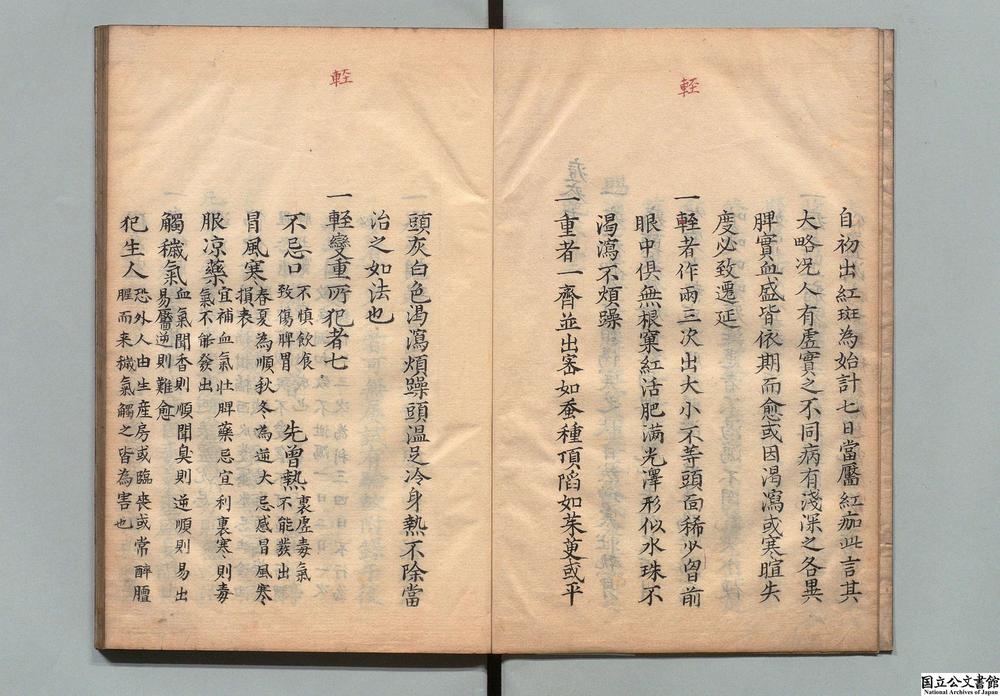 輊
自初出紅斑為始計七日當靨紅痂此言其
大略况人有虛實之不同病有淺深之各異
脾實血盛皆依期而愈或因渴瀉或寒暄失
度必致遷延
一輕者作兩三次出大小不等頭面稀少胷前
眼中俱無根窠紅活肥満光澤形似水珠不
渴瀉不煩躁
一重者一齊並出宻如蚕種頂䧟如茱萸或平
輊
頭灰白色渴瀉煩躁頭温足冷身熱不除當
治之如法也
一輕變重所犯者七
不忌口 不慎飲食
致傷脾胃 先曾熱 裏虛毒氣
不能發出
冒風寒 春夏為順秋冬為逆大忌感冒風寒
損表
服凉藥 宜補血氣壮脾藥忌宜利裏寒則毒
氣不能發出
觸穢氣 血氣聞香則順聞臭則逆順則易出
易靨逆則難愈
犯生人 恐外人由生産房或臨丧或常醉膻
腥而来穢氣觸之皆為害也
国立公文書館
National Archives of Japan